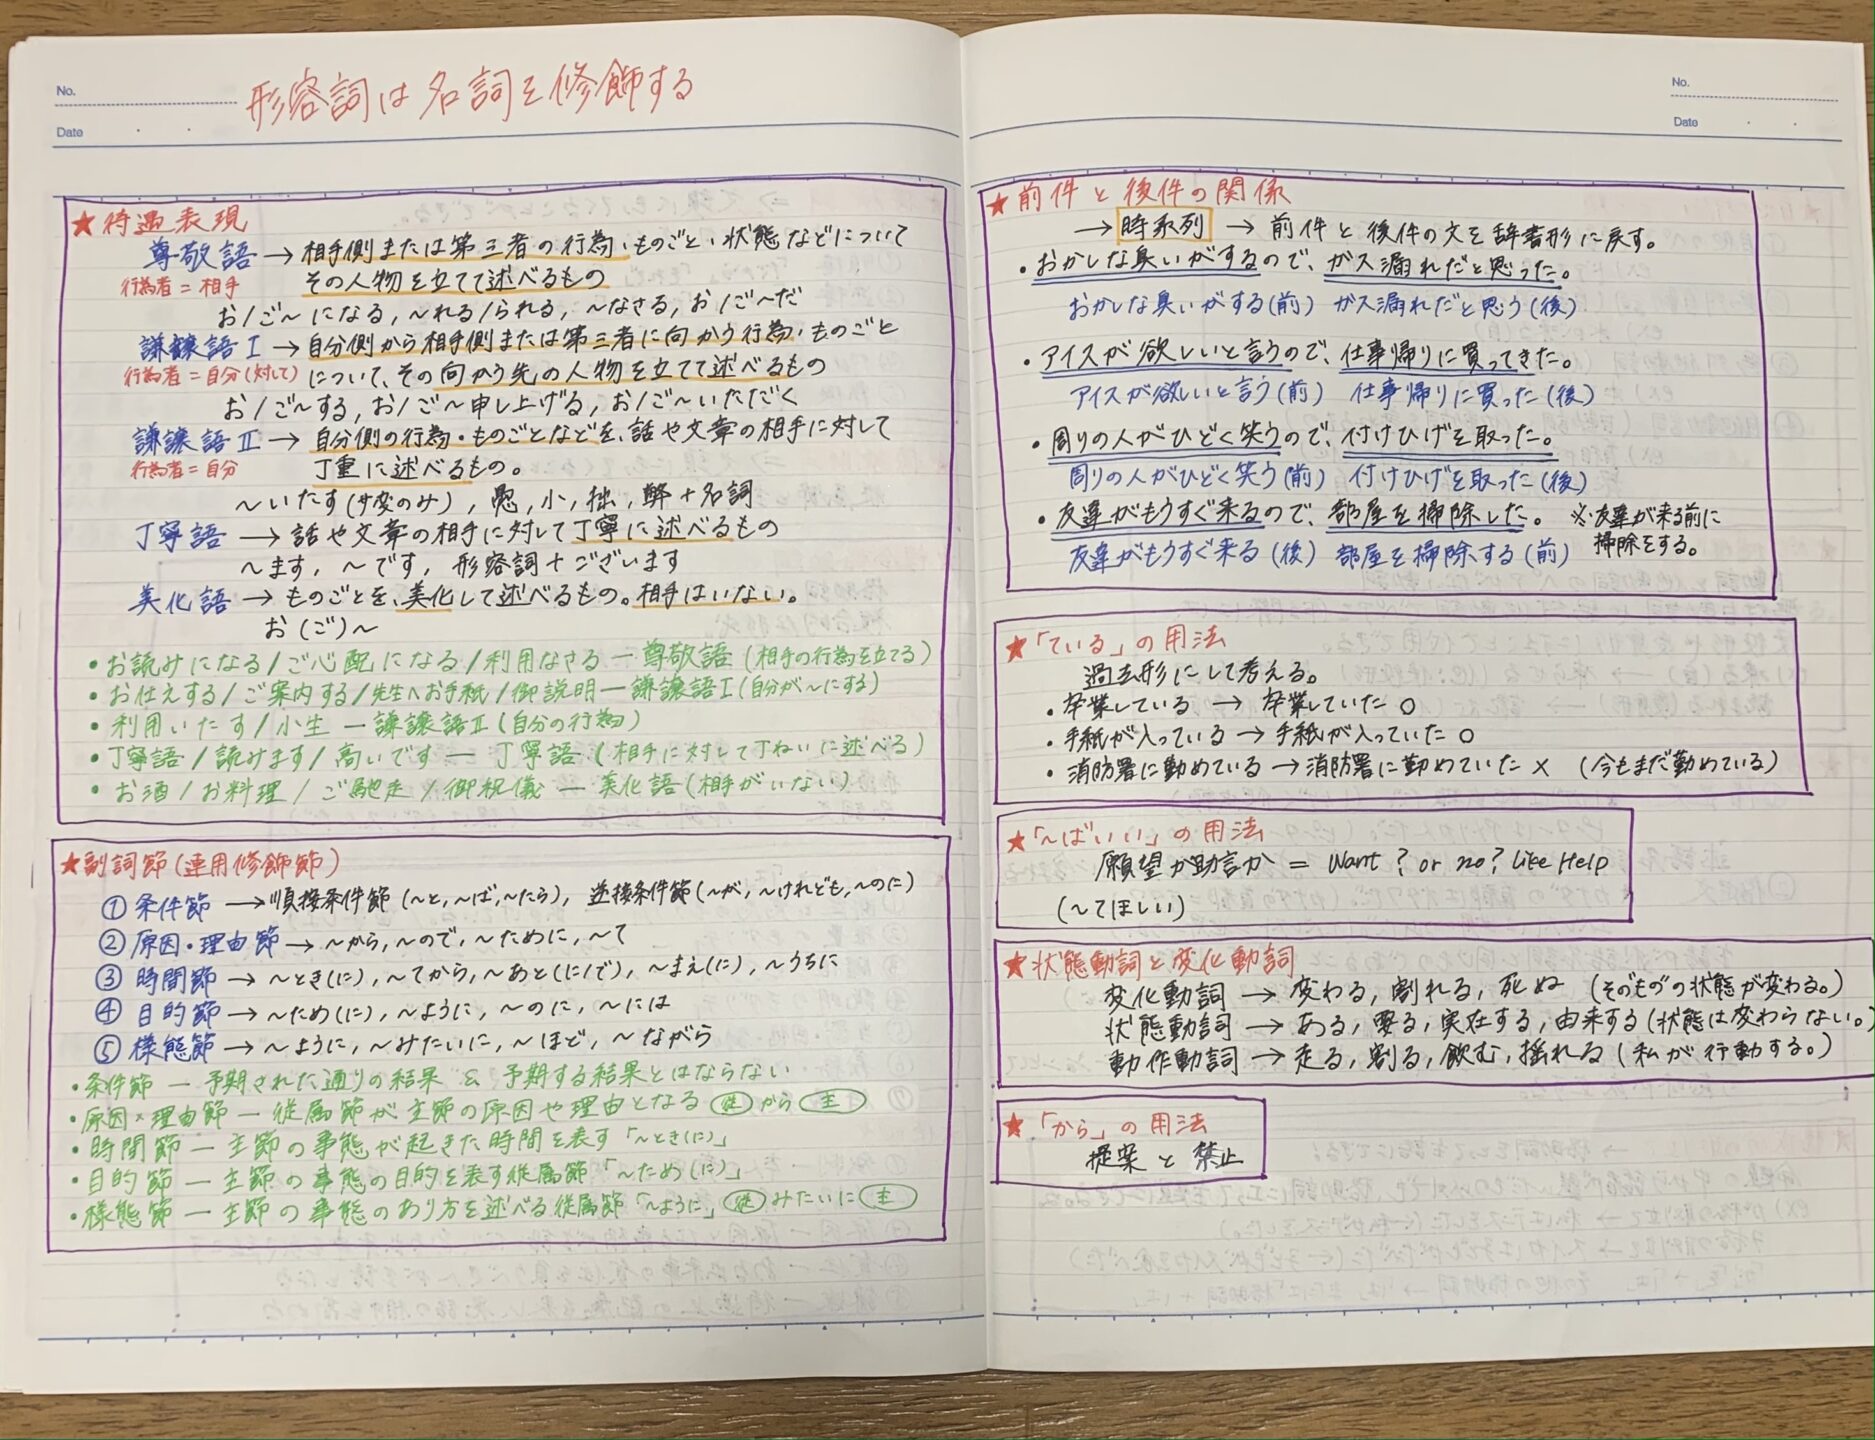 No.
Date
形容詞は名詞を修飾する
★待遇表現
尊敬語→相手側または第三者の行為・ものごと・状態などについて
行為者=相手 その人物を立てて述べるもの
お/ご〜になる,〜れる/られる,〜なさる,お/ご〜だ
謙譲語Ⅰ→自分側から相手側または第三者に向かう行為・ものごと
行為者=自分(対して) について、その向かう先の人物を立てて述べるもの
お/ご〜する,お/ご〜申し上げる,お/ご〜いただく
謙譲語Ⅱ→自分側の行為・ものごとなどを、話や文章の相手に対して
行為者=自分 丁重に述べるもの。
〜いたす(サ変のみ),愚,小,拙,弊+名詞
丁寧語→話や文章の相手に対して丁寧に述べるもの
〜ます,〜です,形容詞+ございます
美化語→ものごとを、美化して述べるもの。相手はいない。
お(ご)〜
・お読みになる/ご心配になる/利用なさる―尊敬語(相手の行為を立てる)
・お仕えする/ご案内する/先生へお手紙/御説明―謙譲語Ⅰ(自分が〜にする)
・利用いたす/小生―謙譲語Ⅱ(自分の行為)
・丁寧語/読みます/高いです―丁寧語(相手に対して丁ねいに述べる)
・お酒/お料理/ご馳走/御祝儀―美化語(相手がいない)
★副詞節(連用修飾節)
①条件節→順接条件節(〜と,〜ば,〜たら),逆接条件節(〜が,〜けれども,〜のに)
②原因・理由節→〜から,〜ので,〜ために,〜て
③時間節→〜とき(に),〜てから,〜あと(に/で),〜まえ(に),〜うちに
④目的節→〜ため(に),〜ように,〜のに,〜には
⑤様態節→〜ように,〜みたいに,〜ほど,〜ながら
・条件節―予期された通りの結果 & 予期する結果とはならない
・原因×理由節―従属節が主節の原因や理由となる 従から主
・時間節―主節の事態が起きた時間を表す「〜とき(に)」
・目的節―主節の事態の目的を表す従属節「〜ため(に)」
・様態節―主節の事態のあり方を述べる従属節「〜ように」従みたいに主
No.
Date
★前件と後件の関係
→時系列→前件と後件の文を辞書形に戻す。
・おかしな臭いがするので、ガス漏れだと思った。
おかしな臭いがする(前) ガス漏れだと思う(後)
・アイスが欲しいと言うので、仕事帰りに買ってきた。
アイスが欲しいと言う(前) 仕事帰りに買った(後)
・周りの人がひどく笑うので、付けひげを取った。
周りの人がひどく笑う(前) 付けひげを取った(後)
・友達がもうすぐ来るので、部屋を掃除した。 ※友達が来る前に
掃除をする。
友達がもうすぐ来る(後) 部屋を掃除する(前)
★「ている」の用法
過去形にして考える。
・卒業している→卒業していた○
・手紙が入っている→手紙が入っていた○
・消防署に勤めている→消防署に勤めていた×(今もまだ勤めている)
★「〜ばいい」の用法
願望か助言か = Want? or no? Like Help
(〜てほしい)
★状態動詞と変化動詞
変化動詞→変わる,割れる,死ぬ(そのものの状態が変わる。)
状態動詞→ある,要る,実在する,由来する(状態は変わらない。)
動作動詞→走る,割る,飲む,揺れる(私が行動する。)
★「から」の用法
提案と禁止